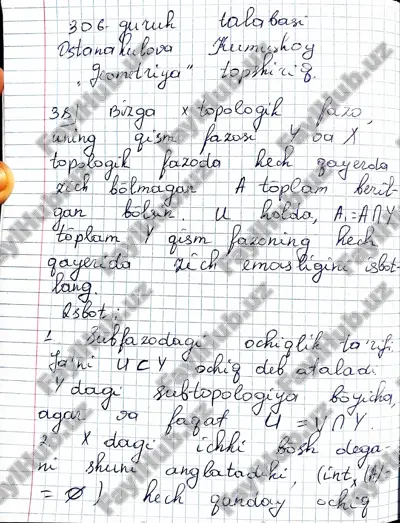 306-guruh talabasi
Ostanakulova Kumushoy
"Geomtriya" topshiriq.
38) Bizga X topologik fazo,
uning qism fazosi Y va X
topologik fazoda hech qayerda
zich bo'lmagan A toplam beril-
gan bo'lsin. U holda, A₁=A∩Y
toplam Y qism fazoning hech
qayerida zich emasligini isbot-
lang.
Isbot:
1. Subfazodagi ochiqlik ta'rifi.
Ya'ni U⊂Y ochiq deb ataladi
Y dagi subtopologiya boyicha,
agar va faqat U=V∩Y.
2. X dagi ichki bosh dega-
ni shuni anglatadiki, (int_x(A)=
=∅) hech qanday ochiq
FaylHub.uz